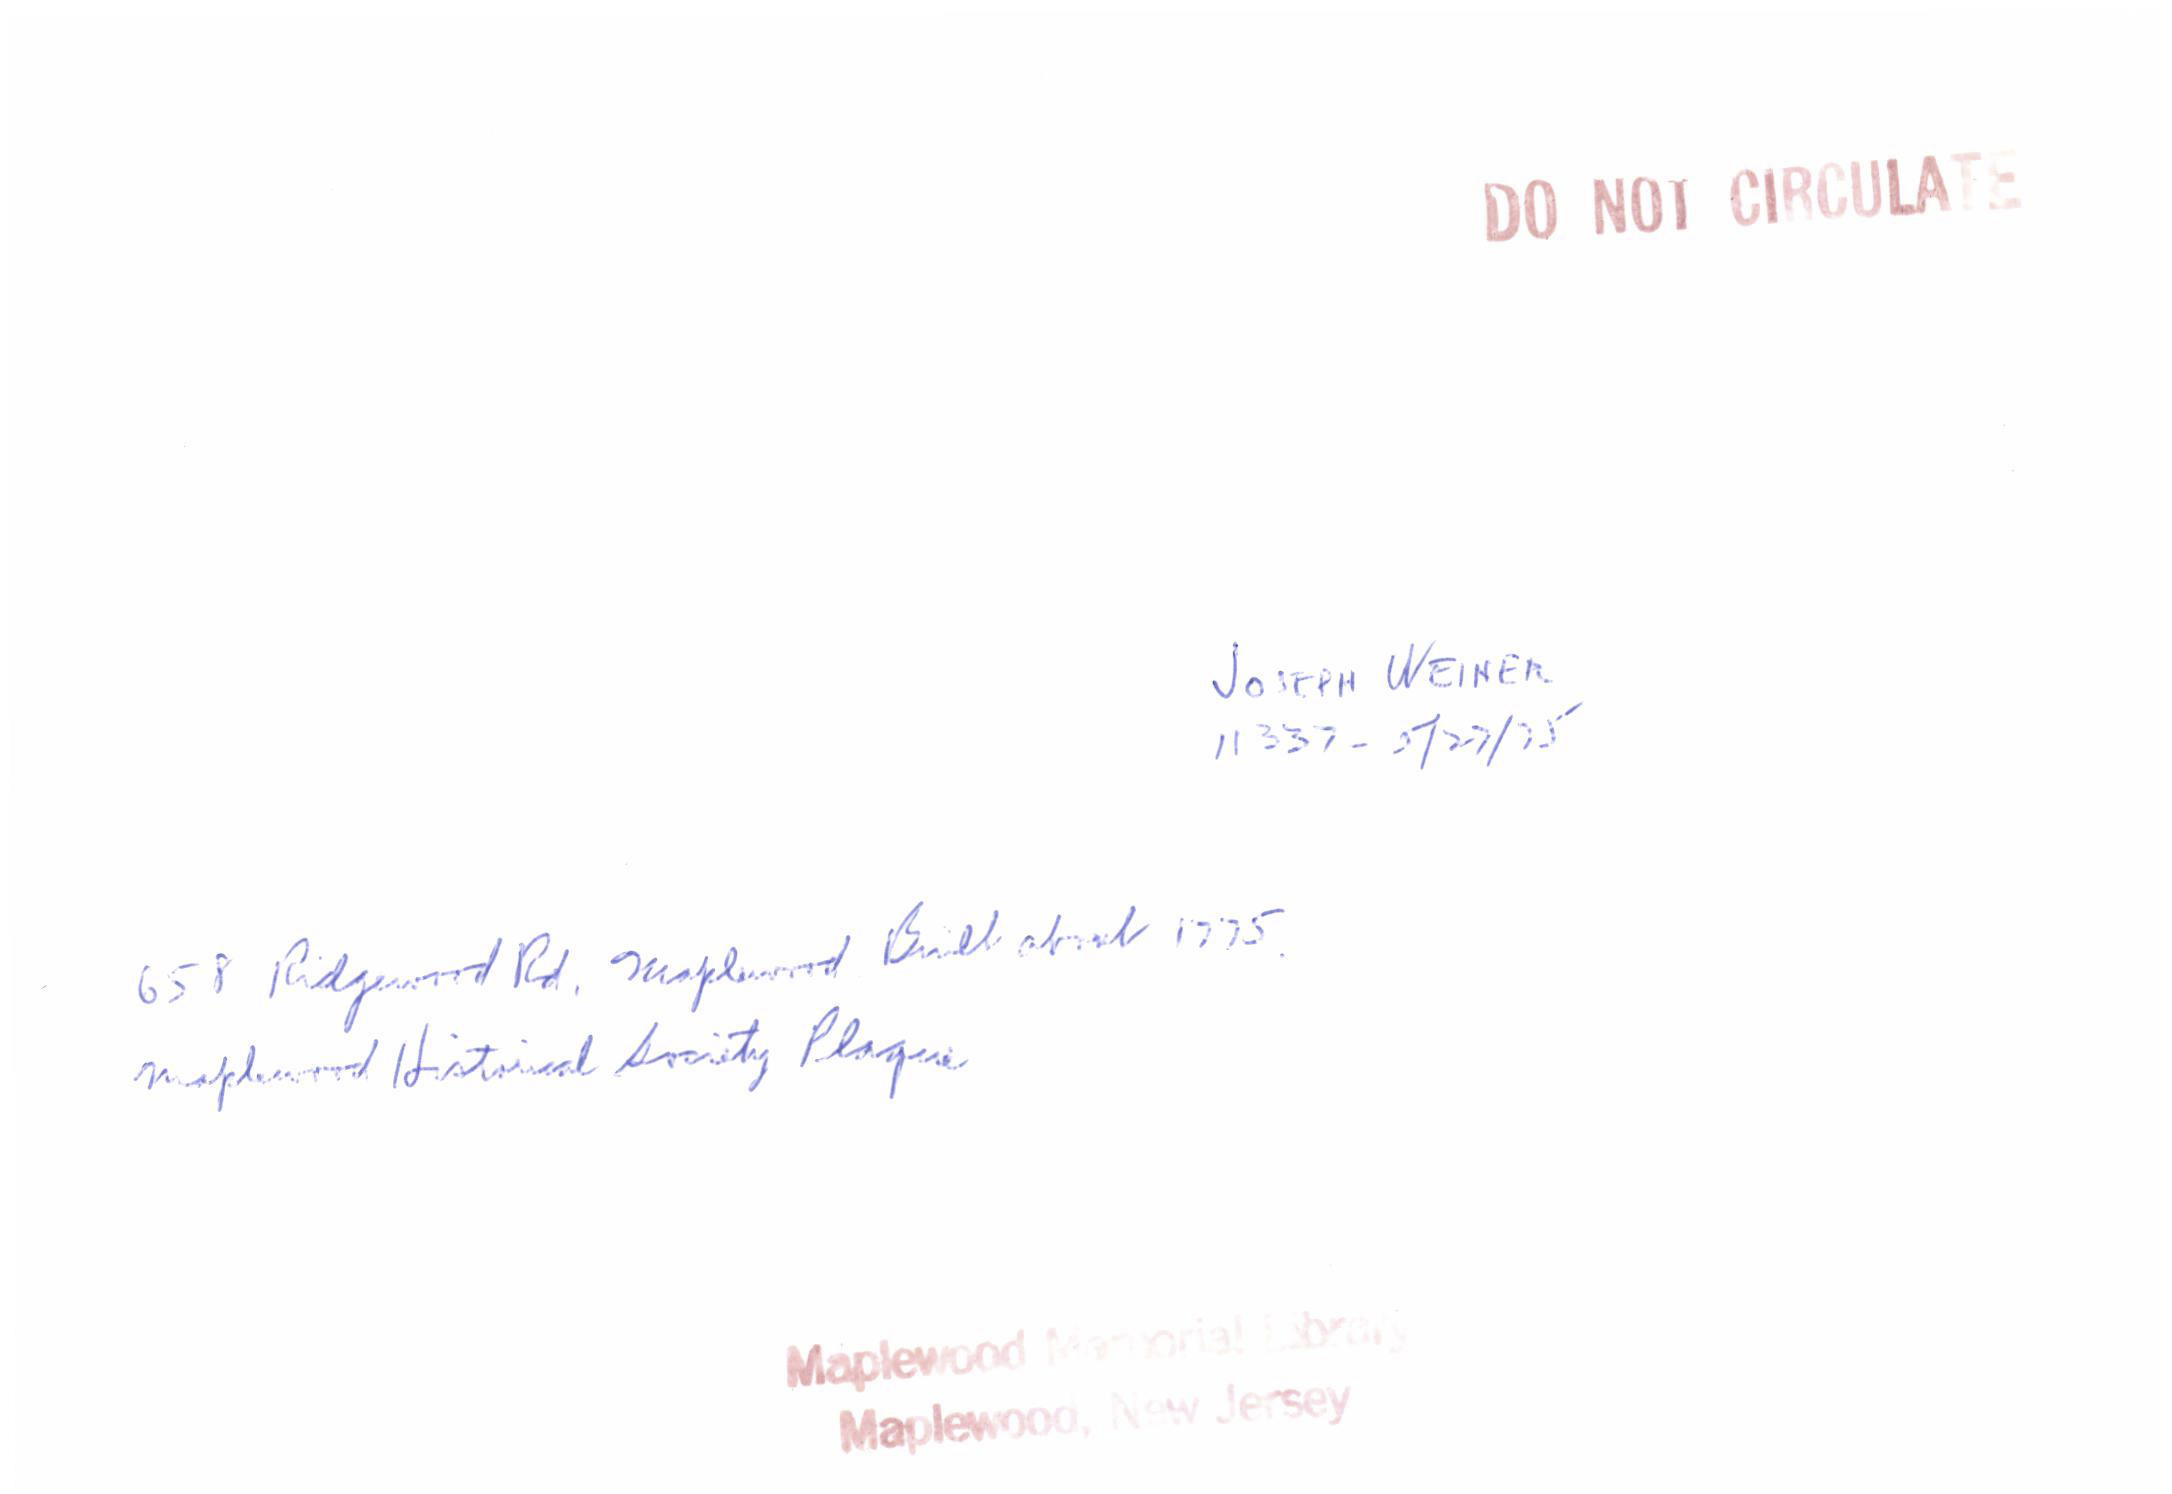 DO NOT CIRCULATE
JOSEPH WEINER
11337 - 5/27/75
658 Ridgewood Rd. Maplewood Built about 1775.
Maplewood Historical Society Plaque
Maplewood Memorial Library
Maplewood, New Jersey